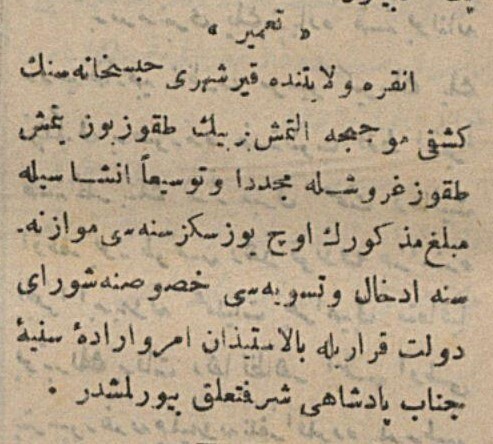 « تعمیر »
انقره ولایتنده قیر شهری حبسخانه سنك
کشفی موجبجه التمش بربیك طقوز یوز یتمش
طقوز غروشـله مجددا وتوسیعاً انشـا سیله
مبلغ مذکورك اوچ یوز سکز سنه سی موازنه
سنه ادخال وتسویه سی خصوصنه شورای
دولت قراریله بالاستیذان امر واراده‌ٔ سنیه‌ٔ
جناب پادشاهی شرفتعلق بیورلمشدر ٠